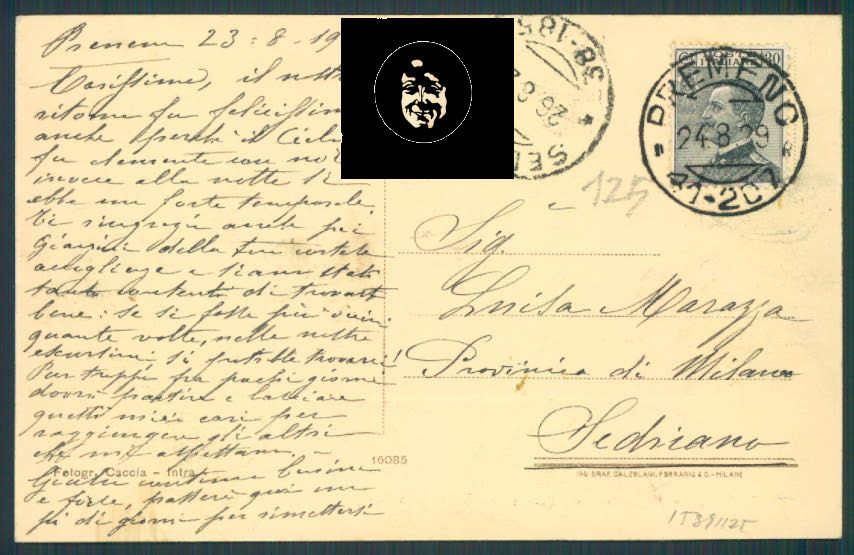 Premeno 23-8-19
Carissima, il nostro
ritorno fu felicissimo
anche perchè il Cielo
fu clemente con noi
invece alla notte si
ebbe un forte temporale
Ti ringrazio anche per
Giannini della tua cortese
accoglienza e siamo stati
tanto contenti di trovarti
bene: se si fosse più vicini
quante volte, nelle nostre
escursioni si potrebbe trovarci!
Pur troppo fra pochi giorni
dovrò partire e lasciare
questi miei cari per
raggiungere gli altri
che mi aspettano. -
benino
e forse, qui un
pò di giorni per rimettersi
Fotogr. Caccia - Intra
16085
38-185
26 8 2
SED
POSTE ITALIANE 30
PREMENO
24.8.29
41-201
125
Sig.
Luisa Marazza
Provincia di Milano
Sedriano
IND. GRAF. CALZOLARI, FERRARIO & C. - MILANO